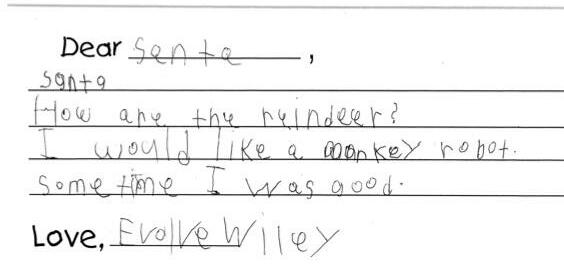 Dear Santa,
Santa
How are the reindeer?
I would like a monkey robot.
Sometime I was good.
Love, Evolve Wiley